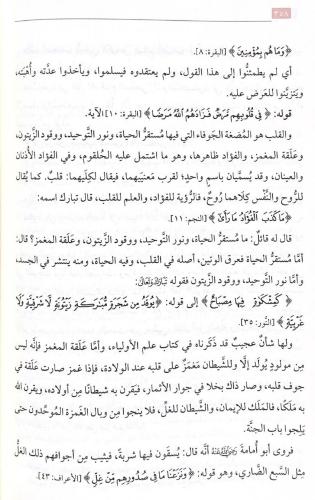 ٣٥٨
﴿وَمَا هُم بِمُؤْمِنِينَ﴾ [البقرة: ٨].
أي لم يطمئنُّوا إلى هذا القول، ولم يعتقدوه فيسلموا، ويأخذوا عدته وأُهْبَته،
ويَتزيَّنوا للعَرض عليه.
قوله: ﴿فِي قُلُوبِهِم مَّرَضٌ فَزَادَهُمُ اللَّهُ مَرَضًا﴾ [البقرة: ١٠] الآية.
والقلب هو المُضغة الجَوفاء التي فيها مُستقرُّ الحياة، ونور التَّوحيد، ووقود الزَّيتون،
وعَلَقة المغمَز، والفؤاد ظاهرها، وهو ما اشتمل عليه الحُلقوم، وفي الفؤاد الأذنان
والعينان، وقد يُسمَّيان باسمٍ واحدٍ؛ لقرب مَعنييهما، فيقال لكِلَيهما: قلبٌ. كما يُقال
للرُّوح والنَّفْس كِلاهما رُوحٌ، فالرُّؤية للفؤاد، والعلم للقلب، قال تبارك اسمه:
﴿مَا كَذَبَ الْفُؤَادُ مَا رَأَىٰ﴾ [النجم: ١١].
قال له قائلٌ: ما مُستقرُّ الحياة، ونور التَّوحيد، ووقود الزَّيتون، وعَلَقة المغمز؟ قال:
أمَّا مستقرُّ الحياة فعرق الوتين، أصله في القلب، وفيه الحياة، ومنه ينتشر في الجسد،
وأمَّا نور التَّوحيد، ووقود الزَّيتون فقوله تَبَارَكَ وَتَعَالَى:
﴿كَمِشْكَوٰةٍ فِيهَا مِصْبَاحٌ﴾ إلى قوله: ﴿يُوقَدُ مِن شَجَرَةٍ مُّبَٰرَكَةٍ زَيْتُونَةٍ لَّا شَرْقِيَّةٍ وَلَا
غَرْبِيَّةٍ﴾ [النُّور: ٣٥].
ولها شأنٌ عجيبٌ قد ذَكَرناه في كتاب علم الأولياء، وأمَّا عَلَقة المغمز فإنَّه ليس
مِن مولودٍ يُولَد إلَّا وللشَّيطان مَغمَزٌ على قلبه عند الولادة، فإذا غمز صارت عَلَقة في
جوف قلبه، وصار ذاك بخلا في جوار الأثمار، فيَقرن به شيطانًا مِن أولاده، ويقرن الله
به مَلَكًا، فالمَلك للإيمان، والشَّيطان للغلِّ، فلا ينجوا مِن وبال الغَمزة الموحِّدون حتى
يَلِجوا باب الجنَّة.
فروى أبو أُمامة رَضِيَ اللَّهُ عَنْهُ أنَّه قال: يُسقَون فيها شربةً، فيثيب مِن أجوافهم ذلك الغلُّ
مثل السبع الضَّاري، وهو قوله: ﴿وَنَزَعْنَا مَا فِي صُدُورِهِم مِّنْ غِلٍّ﴾ [الأعراف: ٤٣].